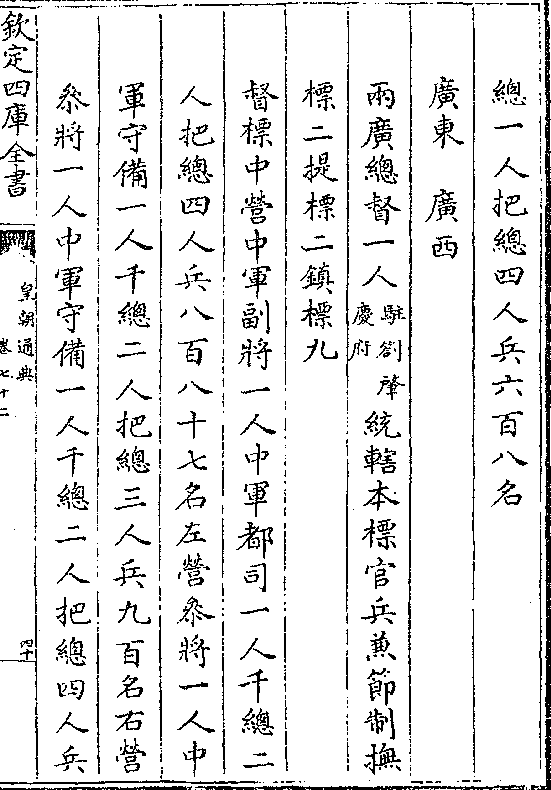 總一人把總四人兵六百八名
廣東　廣西
兩廣總督一人駐劄肇慶府統轄本標官兵兼節制撫
標二提標二鎮標九
督標中營中軍副將一人中軍都司一人千總二
人把總四人兵八百八十七名左營叅將一人中
軍守備一人千總二人把總三人兵九百名右營
叅將一人中軍守備一人千總二人把總四人兵
欽定四庫全書
皇朝通典
卷七十二
四十